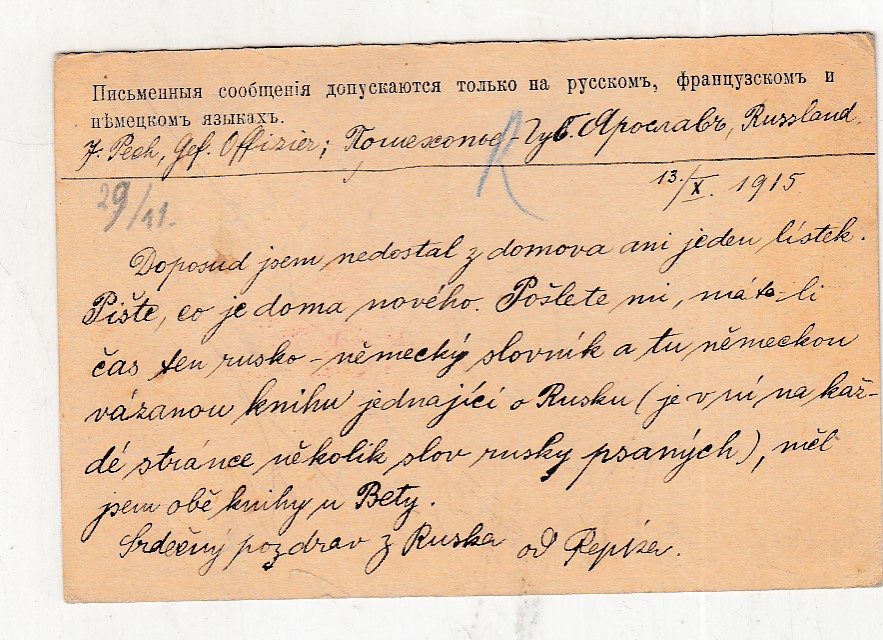 Письменныя сообщенія допускаются только на русскомъ, французскомъ и
нѣмецкомъ языкахъ.
J. Pech, Gef. Offizier; Пошехонье Губ. Ярославъ, Russland.
13./X. 1915
29/11.
Doposud jsem nedostal z domova ani jeden lístek.
Pište, co je doma nového. Pošlete mi, máte-li
čas ten rusko-německý slovník a tu německou
vázanou knihu jednající o Rusku (je v ní na kaž-
dé stránce několik slov rusky psaných), měl
jsem obě knihy u Bety.
Srdečný pozdrav z Ruska od